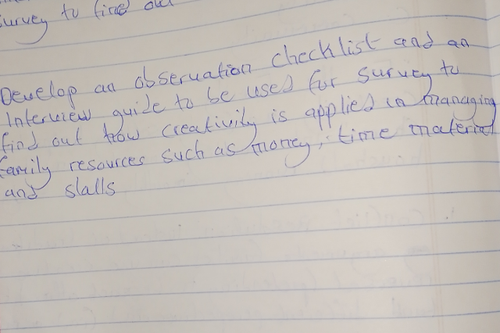 survey to find out
Develop an observation checklist and an
Interview guide to be used for survey to
find out how creativity is applied in managing
family resources such as money, time material
and slalls